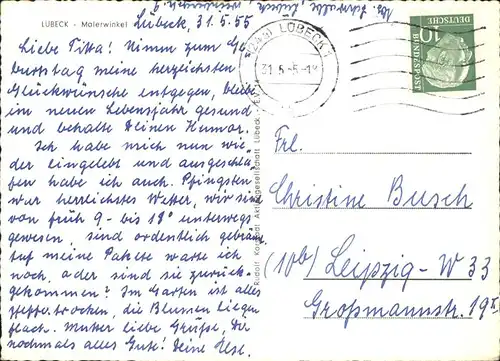 LÜBECK - Malerwinkel
Lübeck, 31.5.55
Liebe Titta! Nimm zum Ge-
burtstag meine herzlichsten
Glückwünsche entgegen, bleibe
im neuen Lebensjahr gesund
und behalte Deinen Humor.
Ich habe mich nun wie-
der eingelebt und ausgeschla-
fen habe ich auch. Pfingsten
war herrlichstes Wetter, wir sind
von früh 9 - bis 18° unterwegs
gewesen, sind ordentlich gebräunt
Auf meine Pakete warte ich
noch, oder sind sie zurück-
gekommen? Im Garten ist alles
trocken, die Blumen liegen
flach. Mutter liebe Grüße, Dir
nochmals alles Gute! Deine Ilse.
Rudolf Aktiengesellschaft Lübeck
LÜBECK 1
31.5.55
10
DEUTSCHE
BUNDESPOST
Frl.
Christine Busch
(10b) Leipzig-W 33
Großmannstr. 19